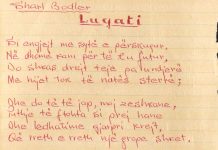 Sharl Bodler
Lugati
Si engjëjt me sytë e përskuqur,
Në dhomë kam për të t'u futur,
Do shkas drejt teje pa undjerë
Me hijet tok të natës sterrë;
Dhe do të të jap, moj zeshkane,
Puthje të ftohta si prej hane
Dhe ledhatime gjarpri krejt,
Që rreth e rreth një grope shket.